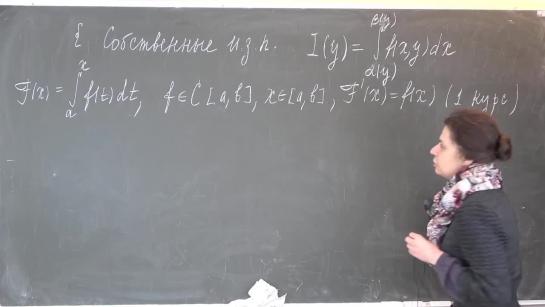 { Собственные и.з.п. I(y) = ∫_{α(y)}^{β(y)} f(x,y)dx
F(x) = ∫_a^x f(t)dt, f∈C[a,b], x∈[a,b], F'(x)=f(x) (1 курс)